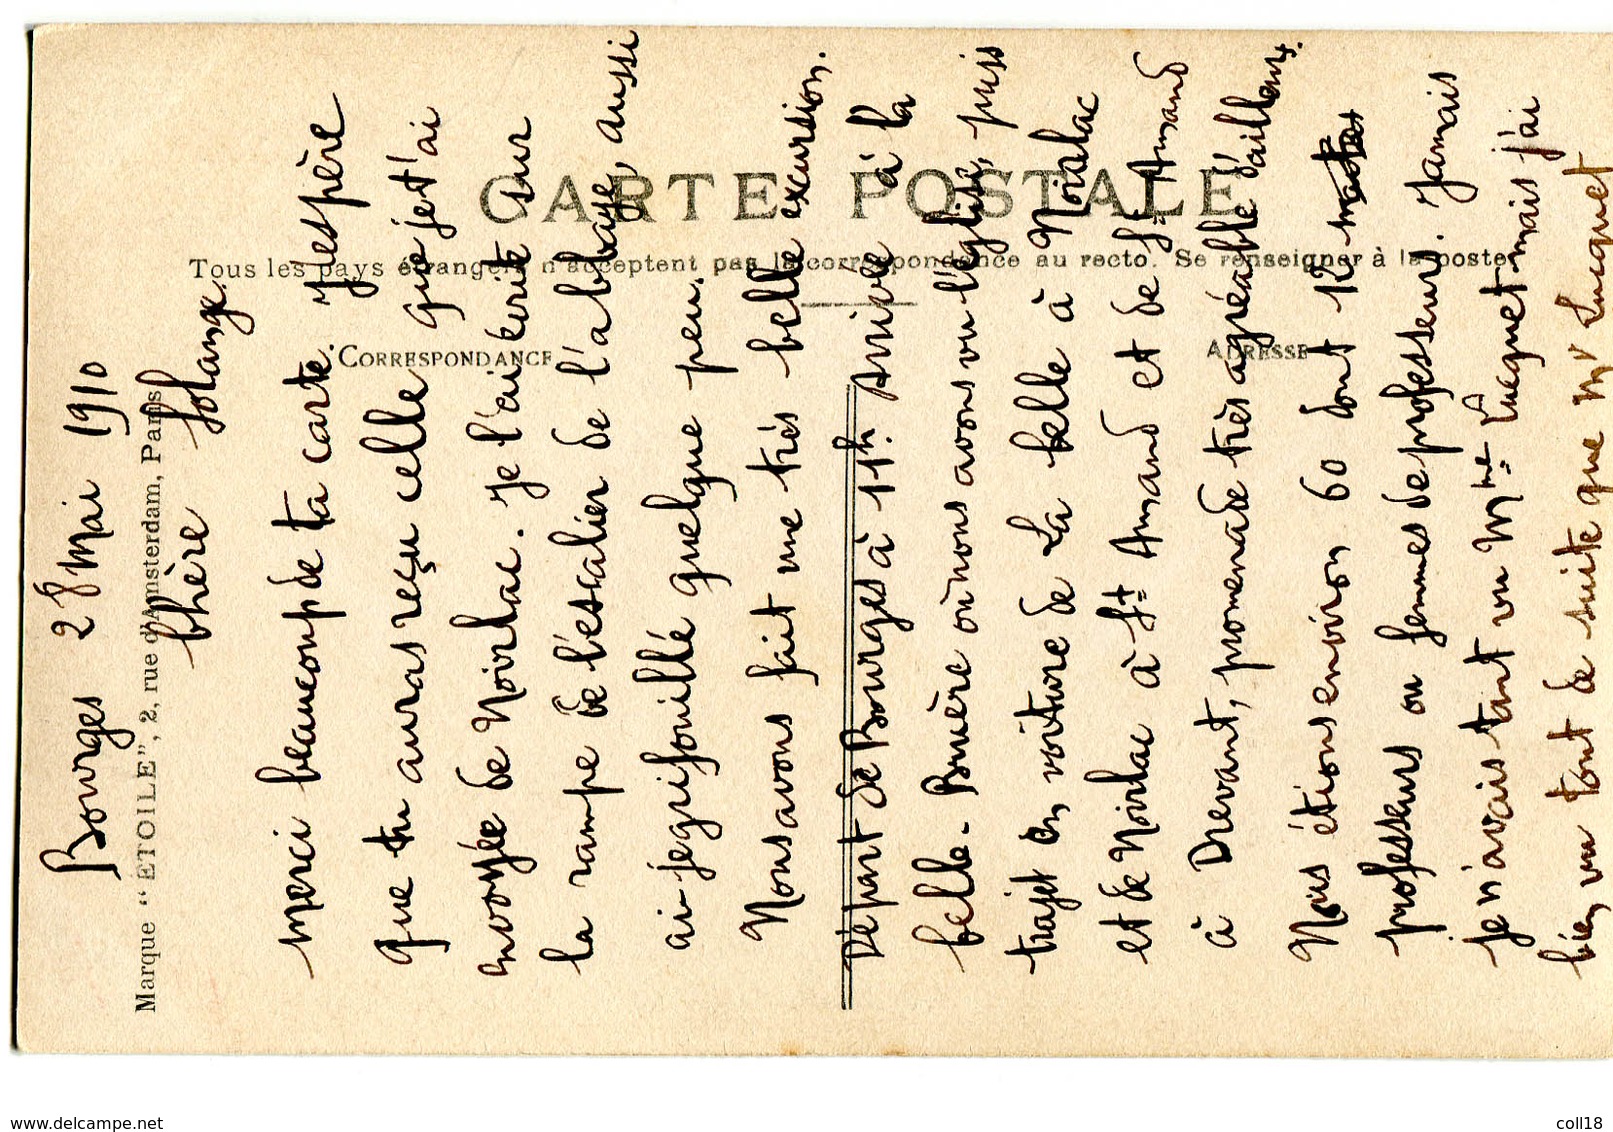 CARTE POSTALE
Tous les pays étrangers n'acceptent pas la correspondance au recto. Se renseigner à la poste
CORRESPONDANCE
ADRESSE
Marque "ETOILE", 2, rue d'Amsterdam, Paris
Bourges 28 Mai 1910
Chère Solange.
Merci beaucoup de ta carte. J'espère
que tu auras reçu celle que je t'ai
envoyée de Noirlac. Je l'ai écrite sur
la rampe de l'escalier de l'abbaye, aussi
ai-je grifouillé quelque peu.
Nous avons fait une très belle excursion.
Départ de Bourges à 11h. Arrivée à la
Celle-Bruère où nous avons vu l'église, puis
trajet en voiture de La Celle à Noirlac
et de Noirlac à St Amand et de St Amand
à Drevant, promenade très agréable d'ailleurs.
Nous étions environ 60 dont 12
professeurs ou femmes de professeurs. Jamais
je n'avais tant vu Mme Luquet mais j'ai
bien vu tout de suite que Mr Luquet
www.delcampe.net
coll18